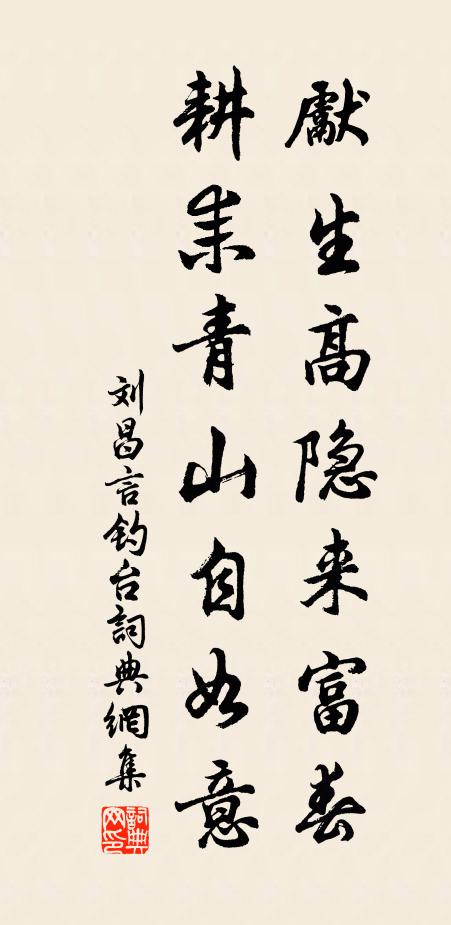 獻生高隐来富春
耕耒青山自如意
刘昌言钓台詞典網集
詞典网印